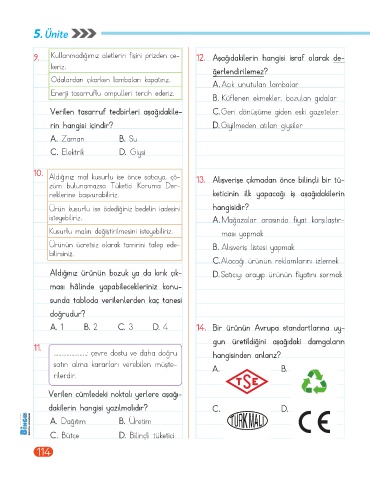 5. Ünite
9. Kullanmadığımız aletlerin fişini prizden çe-
keriz.
Odalardan çıkarken lambaları kapatırız.
Enerji tasarruflu ampulleri tercih ederiz.
Verilen tasarruf tedbirleri aşağıdakile-
rin hangisi içindir?
A. Zaman B. Su
C. Elektrik D. Giysi
10. Aldığınız mal kusurlu ise önce satıcıya, çö-
züm bulunamazsa Tüketici Koruma Der-
neklerine başvurabiliriz.
Ürün kusurlu ise ödediğiniz bedelin iadesini
isteyebiliriz.
Kusurlu malın değiştirilmesini isteyebiliriz.
Ürünün ücretsiz olarak tamirini talep ede-
bilirsiniz.
Aldığınız ürünün bozuk ya da kırık çık-
ması hâlinde yapabilecekleriniz konu-
sunda tabloda verilenlerden kaç tanesi
doğrudur?
A. 1 B. 2 C. 3 D. 4
11. .................... çevre dostu ve daha doğru
satın alma kararları verebilen müşte-
rilerdir.
Verilen cümledeki noktalı yerlere aşağı-
dakilerin hangisi yazılmalıdır?
A. Dağıtım B. Üretim
C. Bütçe D. Bilinçli tüketici
12. Aşağıdakilerin hangisi israf olarak de-
ğerlendirilemez?
A. Açık unutulan lambalar
B. Küflenen ekmekler, bozulan gıdalar
C. Geri dönüşüme giden eski gazeteler
D. Giyilmeden atılan giysiler
13. Alışverişe çıkmadan önce bilinçli bir tü-
keticinin ilk yapacağı iş aşağıdakilerin
hangisidir?
A. Mağazalar arasında fiyat karşılaştır-
ması yapmak
B. Alışveriş listesi yapmak
C. Alacağı ürünün reklamlarını izlemek
D. Satıcıyı arayıp ürünün fiyatını sormak
14. Bir ürünün Avrupa standartlarına uy-
gun üretildiğini aşağıdaki damgaların
hangisinden anlarız?
A. TSE B.
C. TÜRK MALI D. CE
Bingo
114